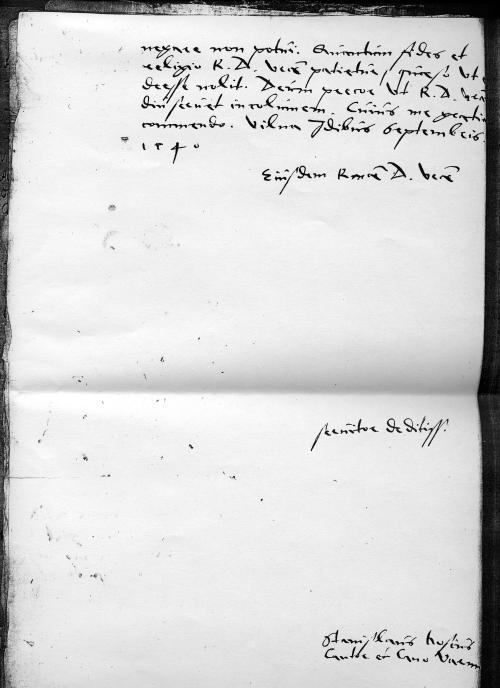 negare non potui. Quantum fides et
religio R. D. Vrae patietur, quaeso Ut
deesse nolit. Deum precor Ut R. D. Vram
diu servet incolumem. Cuius me gratiae
commendo. Vilna Idibus Septembris.
1540
Eiusdem Rmae D. Vrae
servitor deditiss.
Stanislaus Hosius
Cantor et Cano Varm